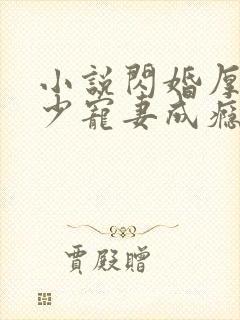 小說閃婚厚
少寵妻成癮
賈殿贈